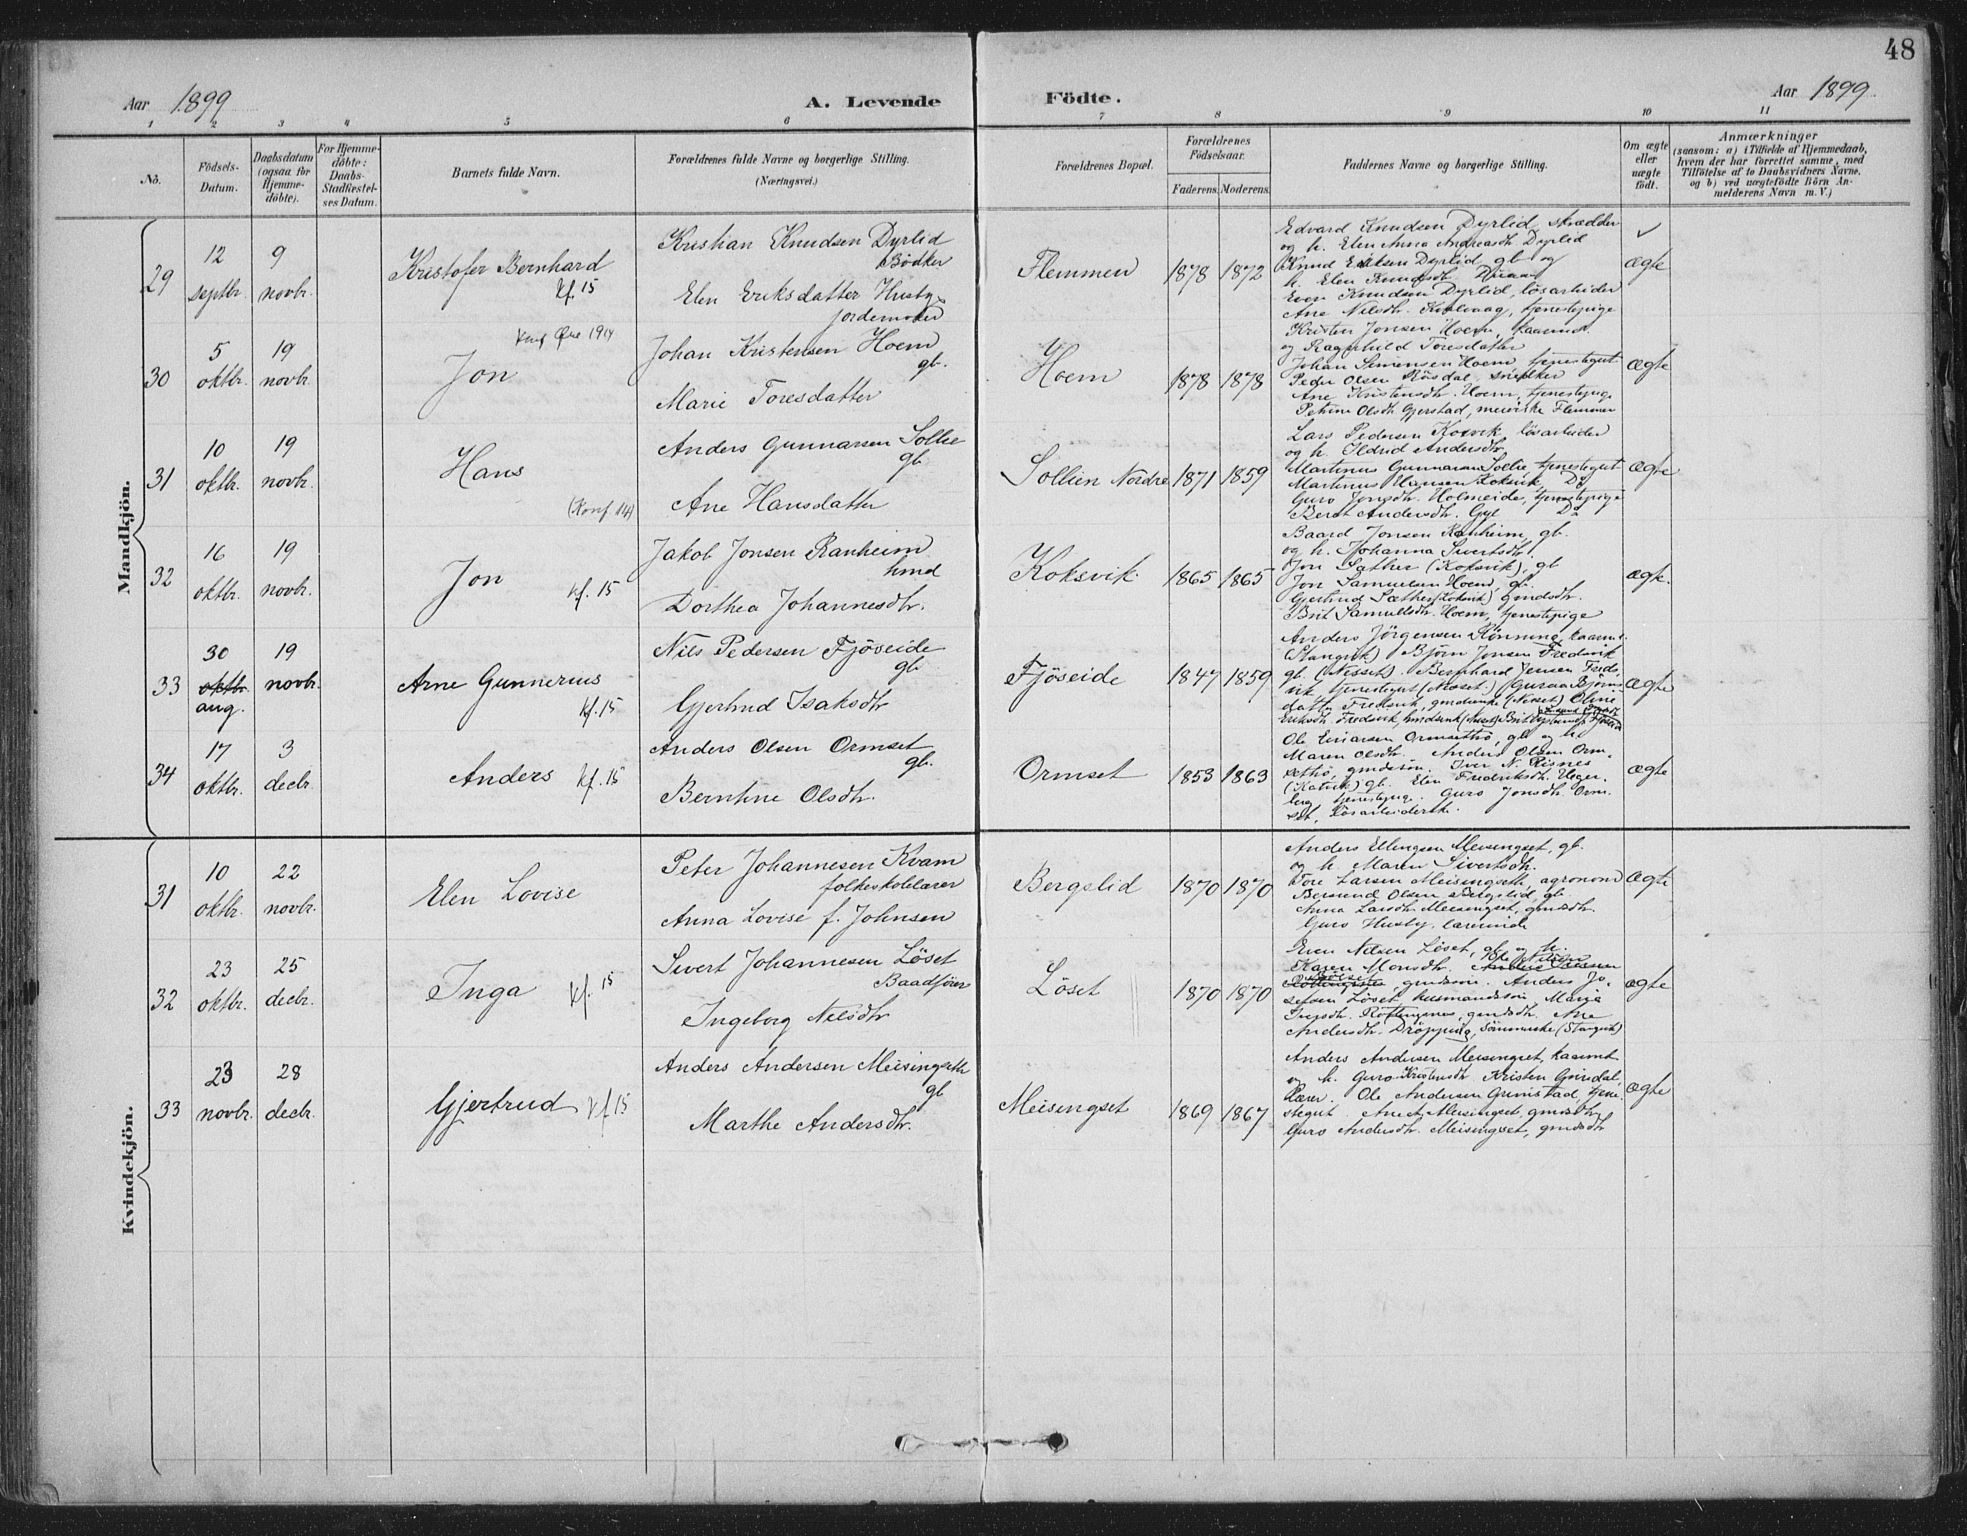 48
Aar 1899
A. Levende Födte.
Aar 1899
1 2 3 4 5 6 7 8 9 10 11
No.
Födsels-Datum.
Daabsdatum (ogsaa for Hjemme-döbte).
For Hjemme-döbte: Daabs-Stadfæstel-ses Datum.
Barnets fulde Navn.
Forældrenes fulde Navne og borgerlige Stilling. (Næringsvei.)
Forældrenes Bopæl.
Forældrenes Födselsaar.
Faderens. Moderens.
Faddernes Navne og borgerlige Stilling.
Om ægte eller uægte födt.
Anmærkninger
(saasom: a) i Tilfælde af Hjemmedaab, hvem der har forrettet samme, med Tilföielse af to Daabsvidners Navne, og b) ved uægtefödte Börn An-melderens Navn m. V.)
Mandkjön.
29
12 septbr.
9 novbr.
Kristofer Bernhard
kf. 15
Kristian Knudsen Dyrlid
Bödker
Elen Eriksdatter Husby
jordemoder
Flemmen
1878 1872
Edvard Knudsen Dyrlid, skrædder
og h. Elen Anna Andreasdtr Dyrlid
Knud Eriksen Dyrlid, gb og
h. Elen Knudsdtr
Even Knudsen Dyrlid, lösarbeider
Ane Nilsdtr. Kvalvaag, tjenestepige
ægte
30
5 oktbr.
19 novbr.
Jon
1914
Johan Kristensen Hoem
gb.
Marie Toresdatter
Hoem
1878 1878
Kristen Jonsen Hoem, kaarmd.
og Ragnhild Toresdatter
Johan Simonsen Hoem, tjenestegut
Peder Olsen Rösdal, snedker
Ane Kristensdtr. Hoem, tjenestepige
Petrine Olsdtr. Gjerstad, meierske Flemmen
ægte
31
10 oktbr.
19 novbr.
Hans
(Konf 14)
Anders Gunnarsen Sollie
gb.
Ane Hansdatter
Sollien Nordre
1871 1859
Lars Pedersen Koksvik lösarbeider
og h. Ildrid Andersdtr.
Martinus Gunnarsen Sollie, tjenestegut
Martinus Hansen Koksvik, Do
Guro Jonsdtr. Holmeide, tjenestepige
Berit Andersdtr. Gyl Do
ægte
32
16 oktbr.
19 novbr.
Jon
kf. 15
Jakob Jonsen Ranheim
hmd
Dorthea Johannesdtr.
Koksvik
1865 1865
Baard Jonsen Ranheim, gb.
og h. Johanna Sivertsdtr.
Jon Sæther (Koksvik), gb
Jon Samuelsen Hoem, gb.
Gjertrud Sæther (Koksvik) gmdsdtr.
Brit Samuelsdtr. Hoem, tjenestepige
ægte.
33
30 oktbr. aug.
19 novbr.
Arne Gunnerius
kf. 15
Nils Pedersen Fjöseide
gb.
Gjertrud Isaksdtr
Fjöseide
1847 1859
Anders Jörgensen Rönning, kaarmd.
(Stangvik) Björn Jonsen Fredsvik
gb. (Nesset). Bernhard Jensen Freds-
vik, tjenestegut (Nesset.) Guraa Björns-
datter Fredsvik, gmdenke (Nesset) Oline
Eriksdtr. Fredsvik,
ægte
34
17 oktbr.
3 decbr.
Anders kf. 15
Anders Olsen Ormset
gb.
Berntine Olsdtr.
Ormset
1853 1863
Ole Einarsen Ormsethö, gb og h.
Maren Olsdtr. Anders Olsen Orm-
sethö, gmdssön. Iver N. Risnes
gb. Elen Fredriksdtr. Heger-
berg tjenestepig. Guro Jonsdtr. Orm-
set, lösarbeiderske.
ægte
Kvindekjön.
31
10 oktbr.
22 novbr.
Elen Lovise
Peter Johannesen Kvam
folkeskolelærer
Anna Lovise f. Johnsen
Bergslid
1870 1870
Anders Ellingsen Meisingset, gb.
og h. Maren Sivertsdtr.
Tore Larsen Meisingseth, agronom
Bersvend Olsen Bergslid, gb.
Anna Larsdtr. Meisingset, gmdsdtr.
Guro Husby, lærerinde
ægte
32
23 oktbr.
25 decbr.
Inga kf. 15
Sivert Johannesen Löset
Baadförer
Ingeborg Nilsdtr
Löset
1870 1870
Even Nilsen Löset, gb og h.
Karen Monsdtr. Ole Nilsen
gmdssön. Anders Jo-
sefsen Löset husmandssön, Maria
Rottengsnes, gmdsdtr. Ane
Andersdtr. Dröpping, sömmerske (Stangvik)
ægte
33
23 novbr.
28 decbr.
Gjertrud kf 15
Anders Andersen Meisingseth
gb
Marthe Andersdtr.
Meisingset
1869 1867
Anders Andersen Meisingset, kaarmd
og h. Guro Kristensdtr. Kristen Grindal,
lærer. Ole Andersen Grimstad, tjene-
stegut. Ane A. Meisingset, gmdsdtr.
Guro Andersdtr. Meisingset, gmdsdtr
ægte